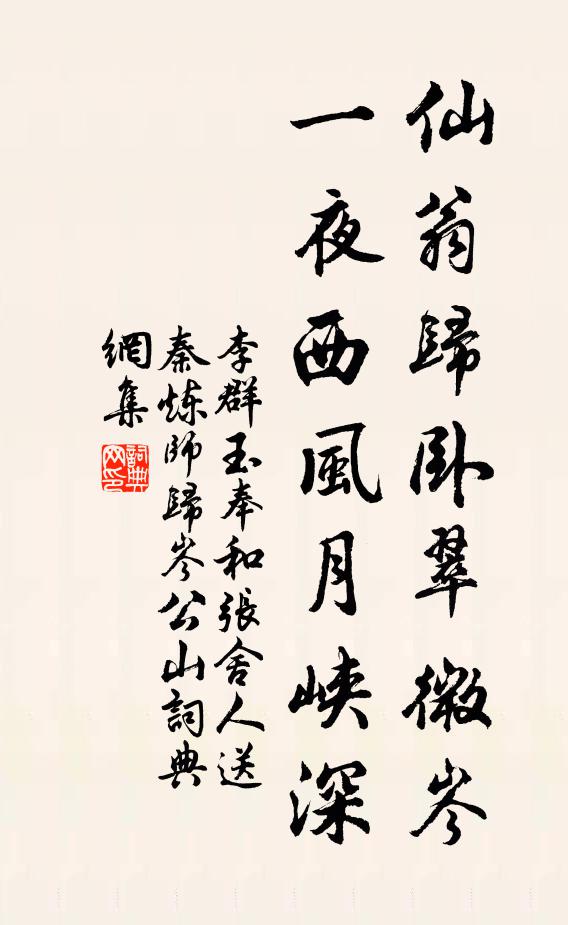 仙翁歸卧翠微岑
一夜西風月峽深
李群玉奉和張舍人送
秦炼師歸岑公山詞典
網集
詞典
网印